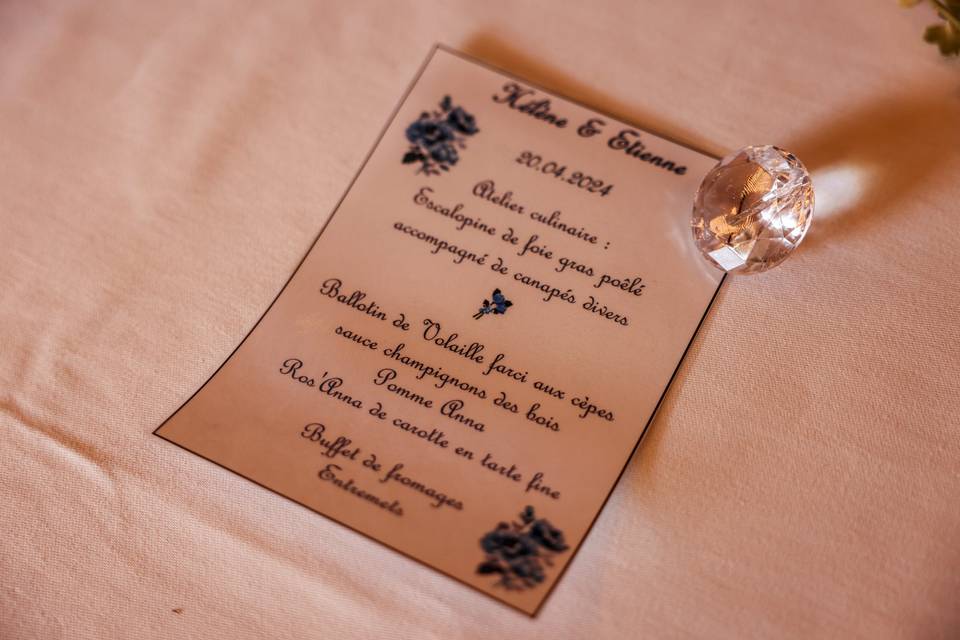 Hélène & Etienne
20.04.2024
Atelier culinaire :
Escalopine de foie gras poêlé
accompagné de canapés divers
Ballotin de Volaille farci aux cèpes
sauce champignons des bois
Pomme Anna
Ros'Anna de carotte en tarte fine
Buffet de fromages
Entremets